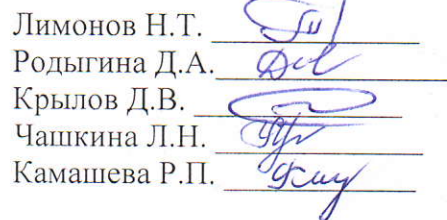 Лимонов Н.Т.
Родыгина Д.А.
Крылов Д.В.
Чашкина Л.Н.
Камашева Р.П.